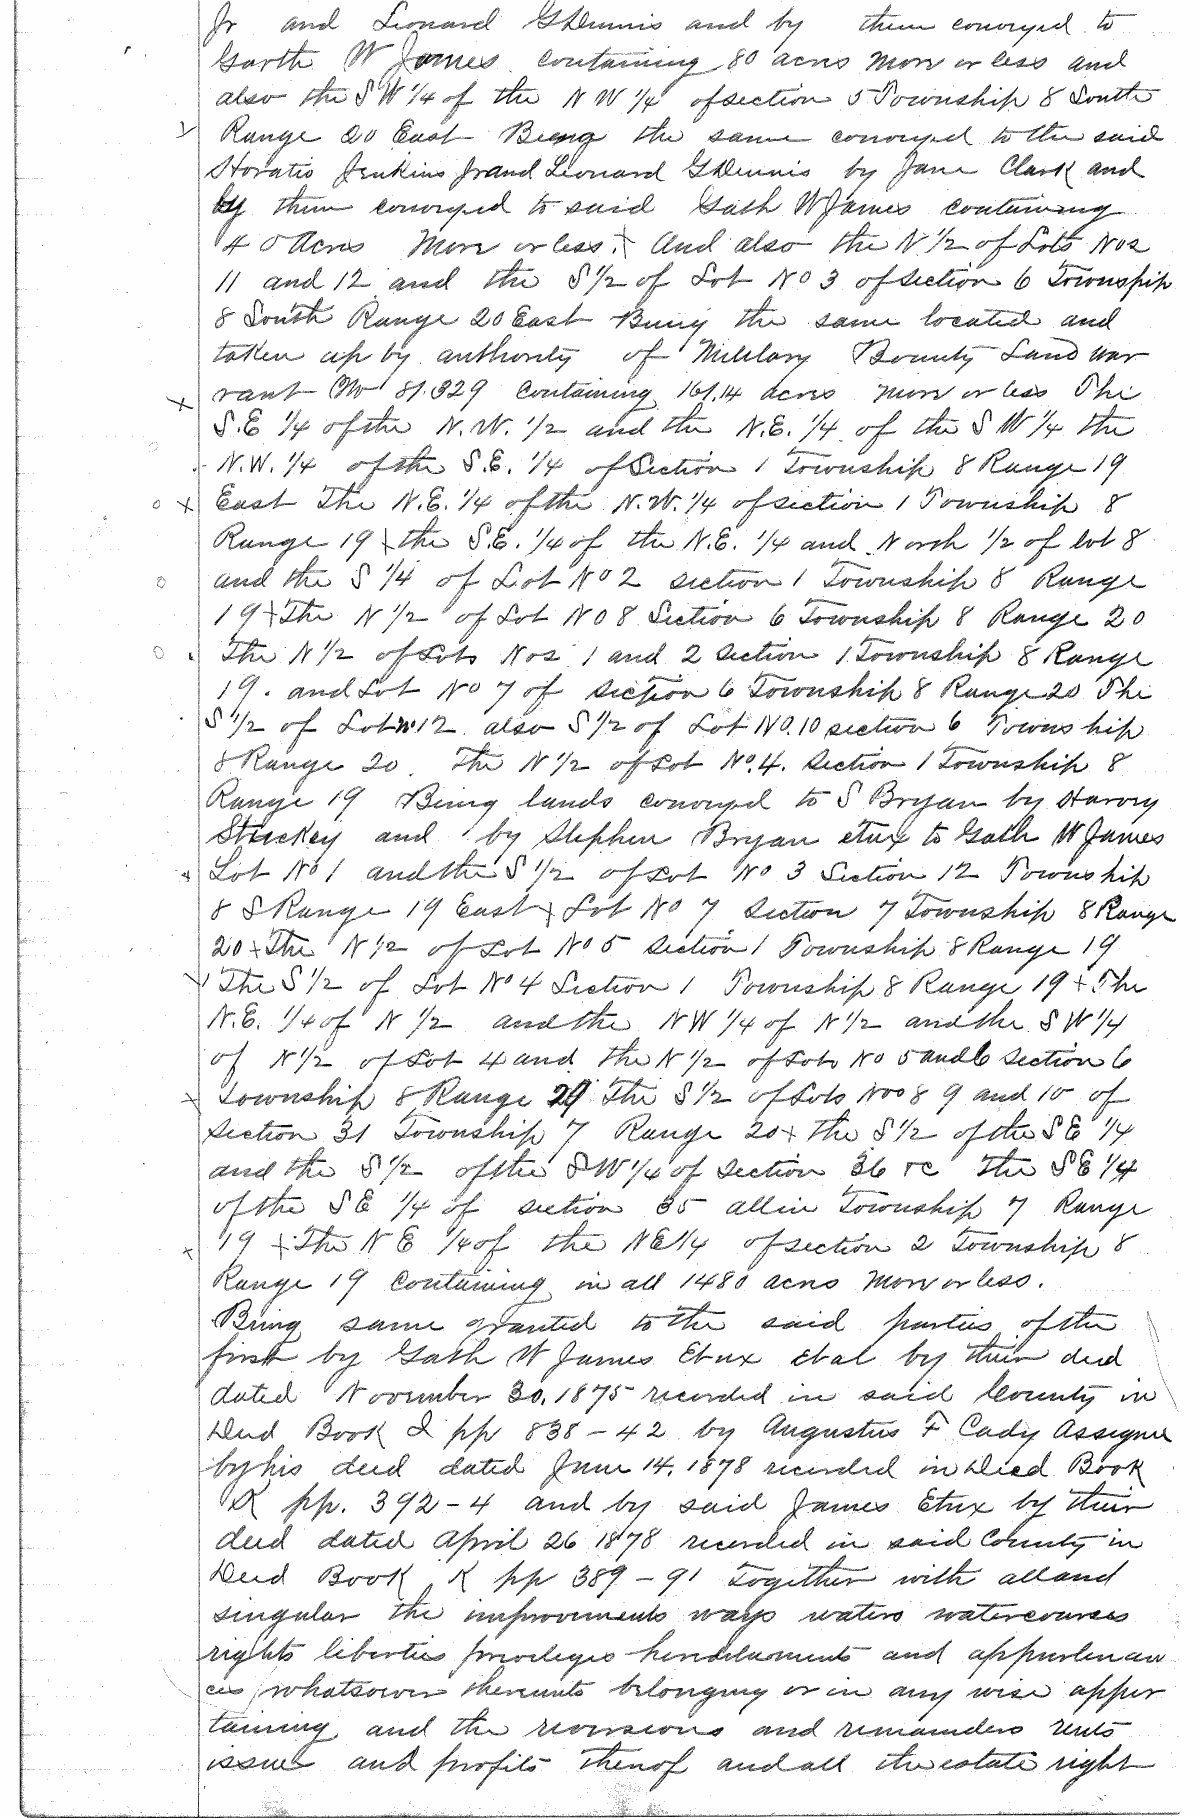 Jr and Leonard G Dennis and by them conveyed to
Garth W James containing 80 acres more or less and
also the S W 1/4 of the N W 1/4 of section 5 Township 8 South
Range 20 East Being the same conveyed to the said
Horatio Jenkins Jr and Leonard G Dennis by Jane Clark and
by them conveyed to said Gath W James containing
40 Acres More or less. And also the N 1/2 of Lots Nos
11 and 12 and the S 1/2 of Lot No 3 of section 6 Township
8 South Range 20 East Being the same located and
taken up by authority of Military Bounty Land War
rant No 81.329 containing 161.14 acres more or less The
S.E 1/4 of the N.W. 1/2 and the N.E. 1/4 of the S W 1/4 the
N.W. 1/4 of the S.E. 1/4 of Section 1 Township 8 Range 19
East The N.E. 1/4 of the N.W. 1/4 of section 1 Township 8
Range 19 + the S.E. 1/4 of the N.E. 1/4 and North 1/2 of lot 8
and the S 1/4 of Lot No 2 section 1 Township 8 Range
19 + The N 1/2 of Lot No 8 Section 6 Township 8 Range 20
The N 1/2 of Lots Nos 1 and 2 section 1 Township 8 Range
19. and Lot No 7 of section 6 Township 8 Range 20 The
S 1/2 of Lot No 12 also S 1/2 of Lot No. 10 section 6 Township
8 Range 20. The N 1/2 of Lot No. 4. section 1 Township 8
Range 19 Being lands conveyed to S Bryan by Harvey
Stuckey and by Stephen Bryan etux to Gath W James
Lot No 1 and the S 1/2 of Lot No 3 Section 12 Township
8 S Range 19 East + Lot No 7 section 7 Township 8 Range
20 + The N 1/2 of Lot No 5 section 1 Township 8 Range 19
The S 1/2 of Lot No 4 Section 1 Township 8 Range 19 + The
N.E. 1/4 of N 1/2 and the NW 1/4 of N 1/2 and the S W 1/4
of N 1/2 of Lot 4 and the N 1/2 of Lots No 5 and 6 section 6
Township 8 Range The S 1/2 of Lots Nos 8 9 and 10 of
section 31 Township 7 Range 20 + the S 1/2 of the S E 1/4
and the S 1/2 of the S W 1/4 of section 36 the S E 1/4
of the S E 1/4 of section 35 all in Township 7 Range
19 + The N E 1/4 of the N E 1/4 of section 2 Township 8
Range 19 containing in all 1480 acres more or less.
Being same granted to the said parties of the
first by Gath W James Etux etal by their deed
dated November 30, 1875 recorded in said County in
Deed Book I pp 838-42 by Augustus F Cady Assignee
by his deed dated June 14, 1878 recorded in Deed Book
K pp. 392-4 and by said James Etux by their
deed dated April 26 1878 recorded in said County in
Deed Book K pp 389-91 Together with all and
singular the improvements ways waters watercourses
rights liberties privileges hereditaments and appurtenan
ces whatsoever thereunto belonging or in any wise apper
taining and the reversions and remainders rents
issues and profits thereof and all the estate right